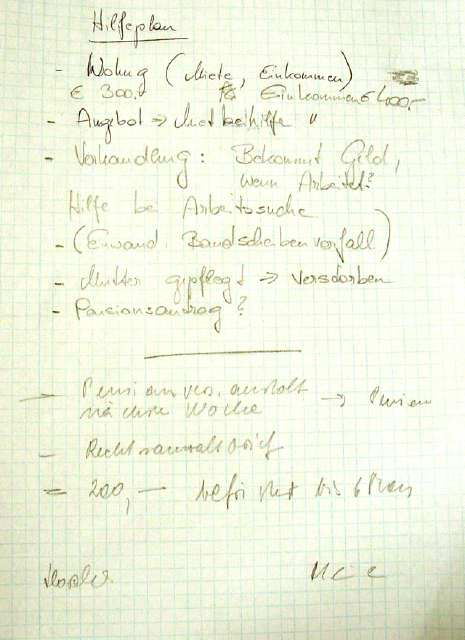 Hilfeplan
- Wohng (Miete, Einkommen)
€ 300.- Einkommen € 400,-
- Angebot => Mietbeihilfe "
- Vorhandlung: Bekommt Geld,
wenn Arbeitet?
Hilfe bei Arbeitssuche
- (Einwand: Bandscheibenvorfall)
- Mutter gepflegt => verstorben
- Pensionsantrag?
- Pensionsvers.anstalt -> Pension
nächste Woche
- Rechtsanwalt
= 200,- befristet bis 6 Mon